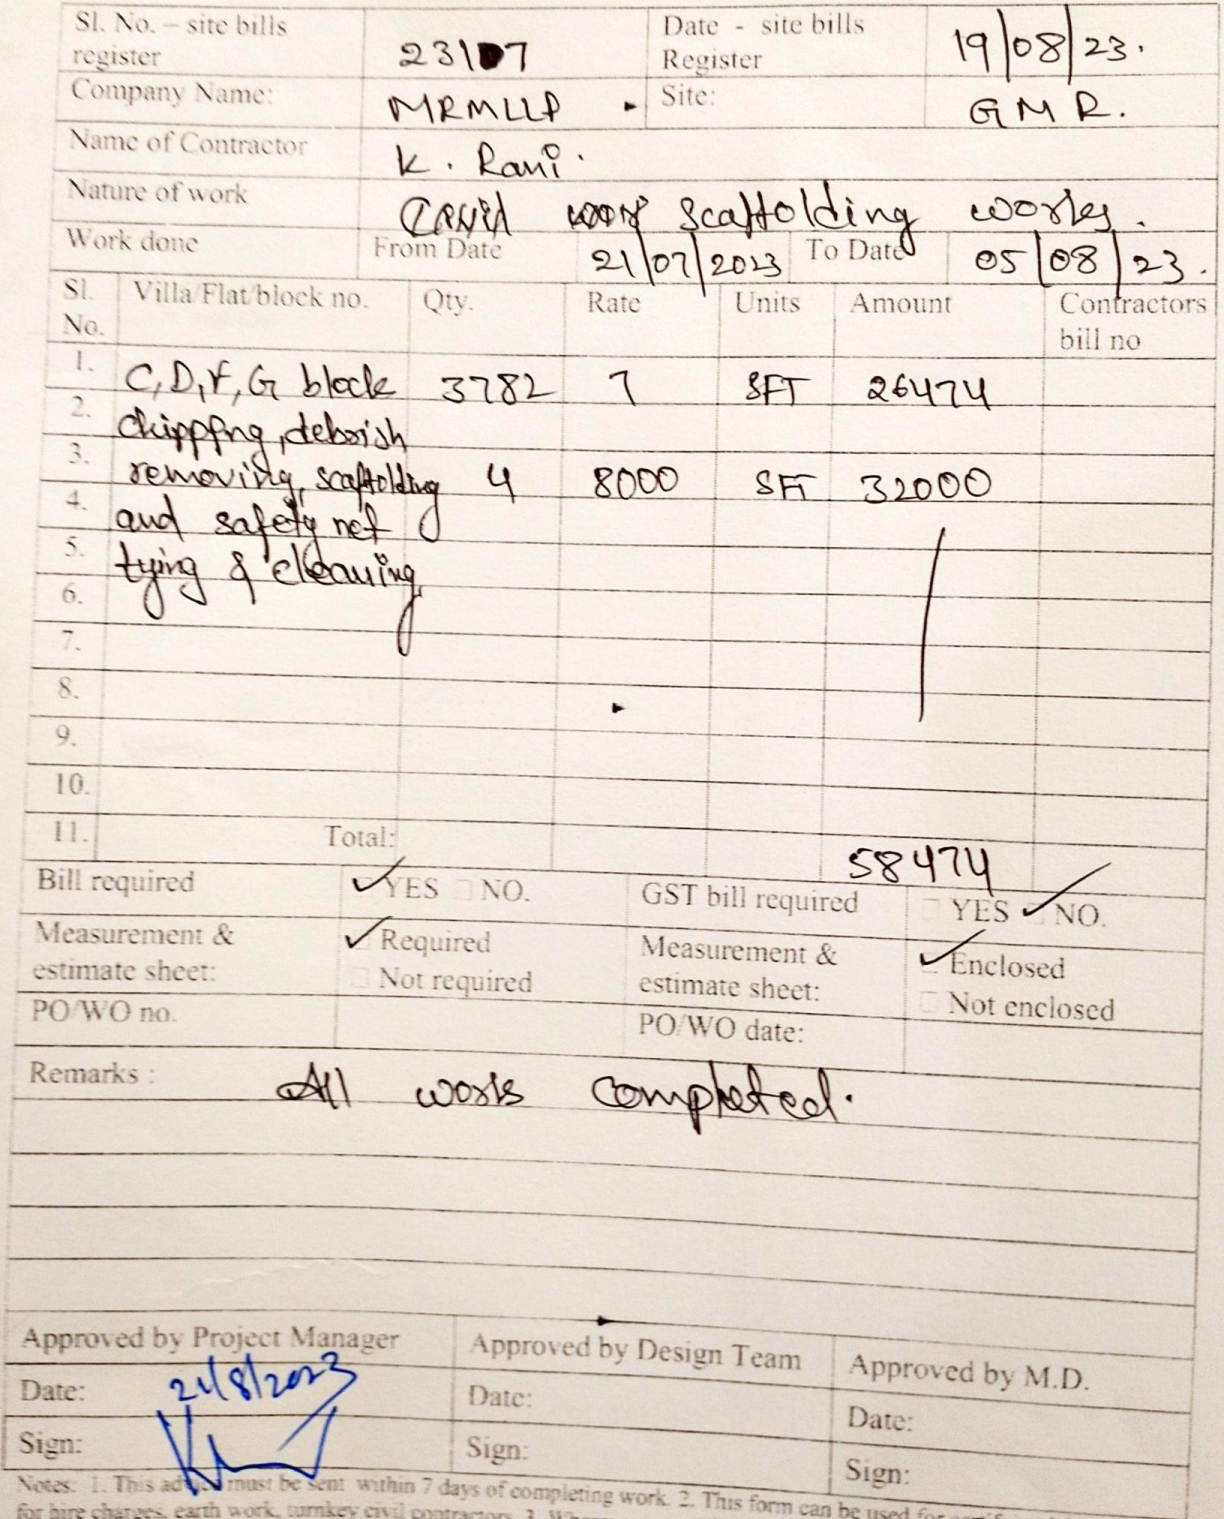 Sl. No. – site bills register 23107 Date - site bills Register 19/08/23.
Company Name: MRMLLP Site: GMR.
Name of Contractor K. Rani.
Nature of work scaffolding works.
Work done From Date 21/07/2023 To Date 05/08/23.
Sl. No. Villa/Flat/block no. Qty. Rate Units Amount Contractors bill no
1. C,D,F,G block 3782 7 SFT 26474
2. chippfng, debrish
3. removing, scaffolding 4 8000 SFT 32000
4. and safety net
5. tying & cleaning
6.
7.
8.
9.
10.
11. Total: 58474
Bill required YES NO. GST bill required YES NO.
Measurement & estimate sheet: Required Not required Measurement & estimate sheet: Enclosed Not enclosed
PO/WO no. PO/WO date:
Remarks : All works completed.
Approved by Project Manager Approved by Design Team Approved by M.D.
Date: 21/8/2023 Date: Date:
Sign: Sign: Sign:
Notes: 1. This must be sent within 7 days of completing work. 2. This form can be used for
for hire charges, earth work, turnkey civil contractors. 3.